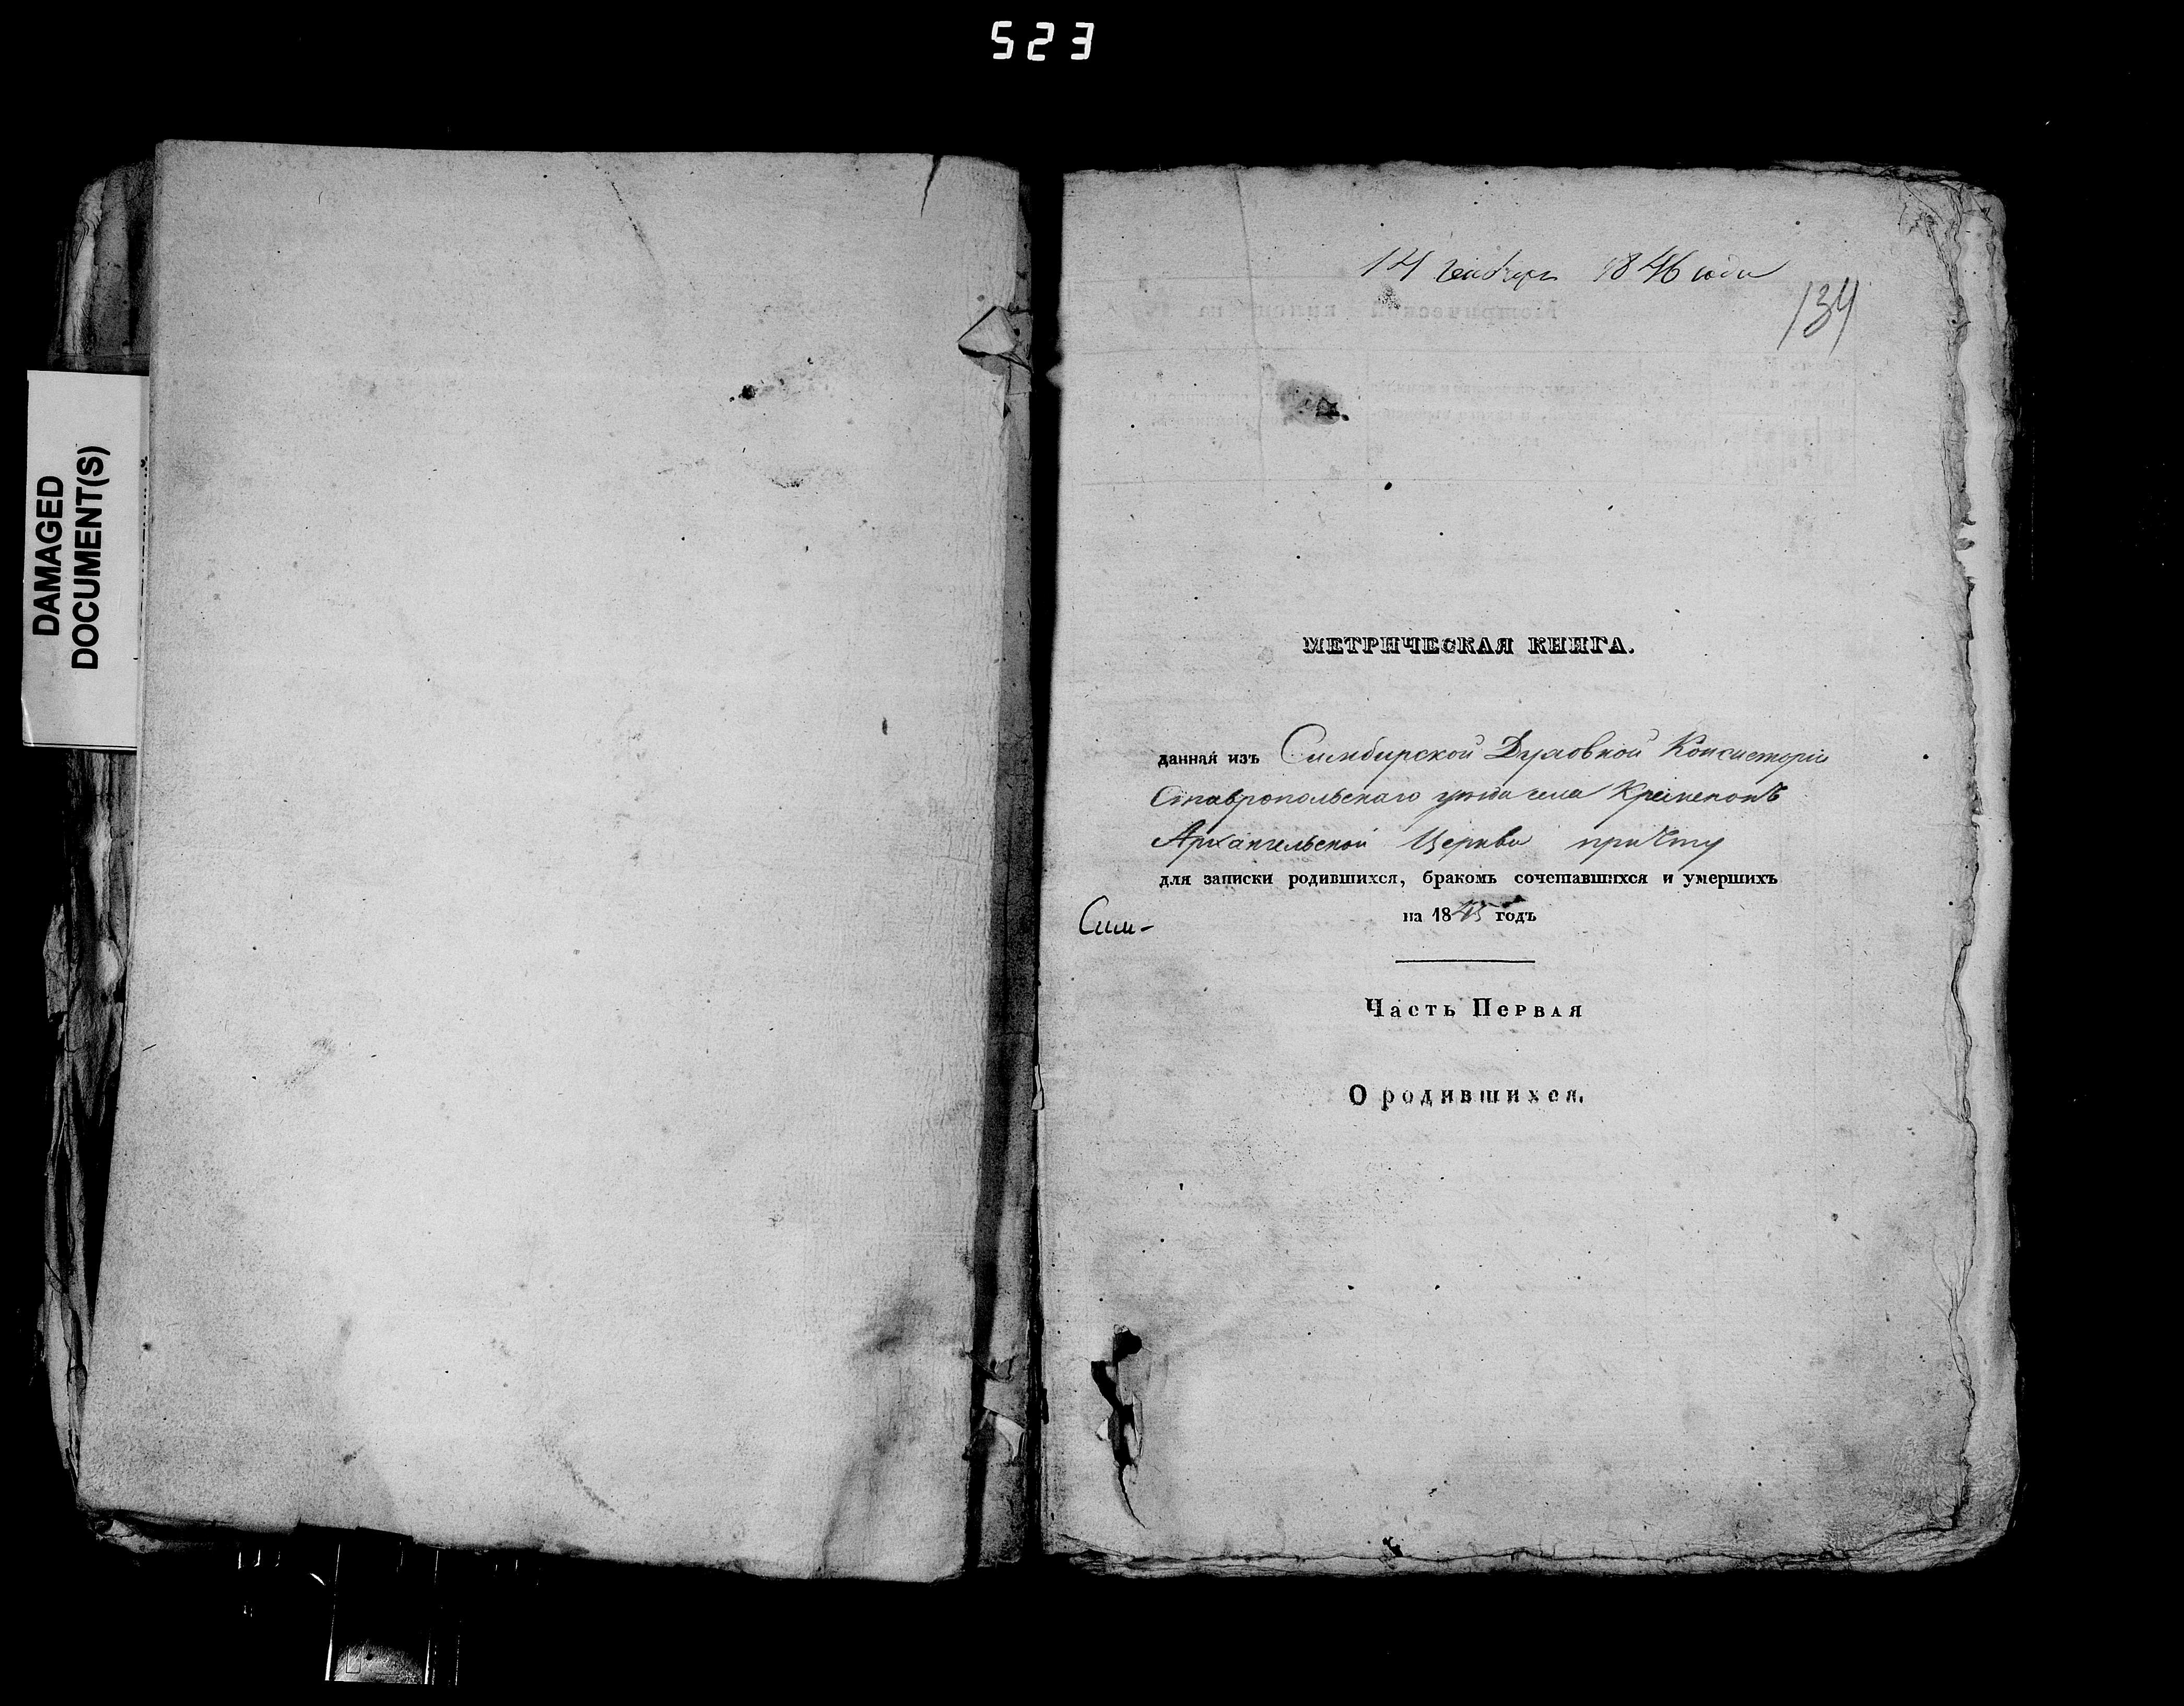 523
DAMAGED
DOCUMENT(S)
14 Генваря 1846 года
134
МЕТРИЧЕСКАЯ КНИГА.
данная изъ Симбирской Духовной Консисторіи
Ставропольскаго уѣзда села Кременокъ
Архангельской Церкви причту
для записки родившихся, бракомъ сочетавшихся и умершихъ
на 1845 годъ
Сим-
Часть Первая
О родившихся.